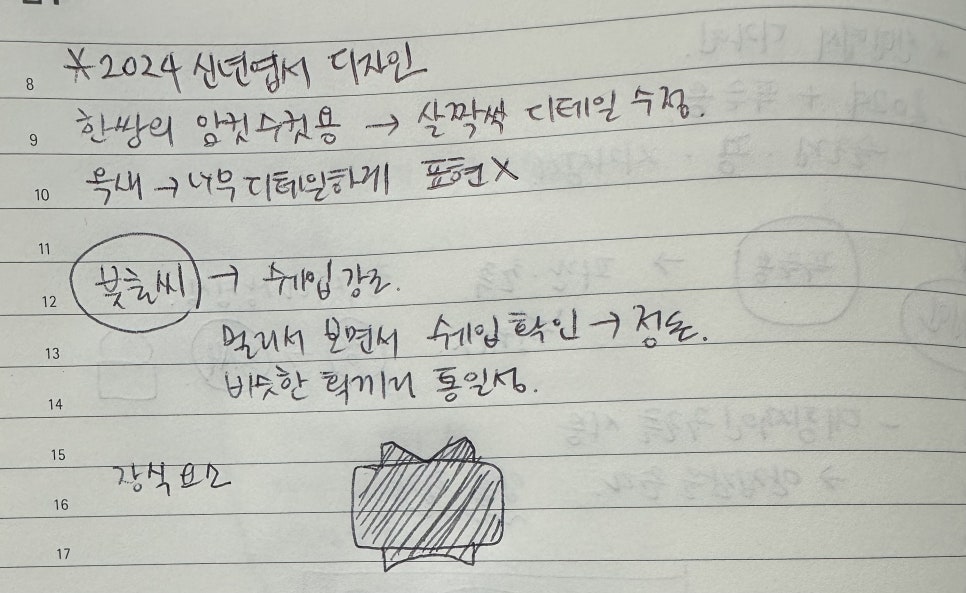 * 2024 신년엽서 디자인
8
한쌍의 암컷수컷용 → 살짝싹 디테일 수정.
9
옥새 → 너무 디테일하게 표현X
10
11
붓글씨 → 쉐입강조.
12
멀리서 보면서 쉐입확인 → 정돈.
13
비슷한 획끼리 통일성.
14
15
장식요소
16
17